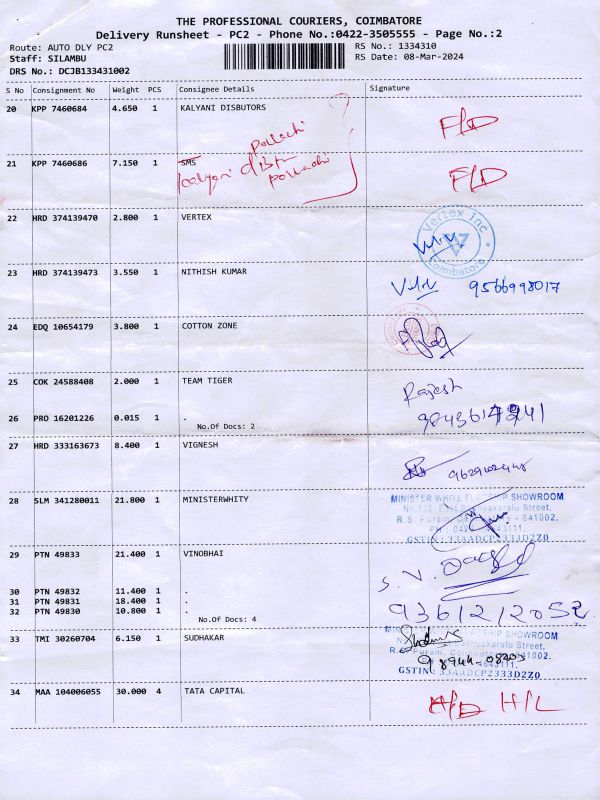 THE PROFESSIONAL COURIERS, COIMBATORE
Delivery Runsheet - PC2 - Phone No.:0422-3505555 - Page No.:2
Route: AUTO DLY PC2
RS No.: 1334310
Staff: SILAMBU
RS Date: 08-Mar-2024
DRS No.: DCJB133431002
S No Consignment No Weight PCS Consignee Details Signature
20 KPP 7460684 4.650 1 KALYANI DISBUTORS
F/D
pollachi
21 KPP 7460686 7.150 1 SMS
F/D
kalyani distr
pollachi
22 HRD 374139470 2.800 1 VERTEX
Vertex Inc
Coimbatore
23 HRD 374139473 3.550 1 NITHISH KUMAR
9566998017
24 EDQ 10654179 3.800 1 COTTON ZONE
25 COK 24588408 2.000 1 TEAM TIGER
Rajesh
26 PRO 16201226 0.015 1 .
No.Of Docs: 2
27 HRD 333163673 8.400 1 VIGNESH
28 SLM 341280011 21.800 1 MINISTERWHITY
MINISTER WHITE FLAGSHIP SHOWROOM
R.S. Puram, - 641002.
GSTIN : 33AADCP2333D2Z0
29 PTN 49833 21.400 1 VINOBHAI
S. V.
30 PTN 49832 11.400 1 .
31 PTN 49831 18.400 1 .
32 PTN 49830 10.800 1 .
No.Of Docs: 4
9361212052
33 TMI 30260704 6.150 1 SUDHAKAR
SHOWROOM
GSTIN : 33AADCP2333D2Z0
34 MAA 104006055 30.000 4 TATA CAPITAL
H/L